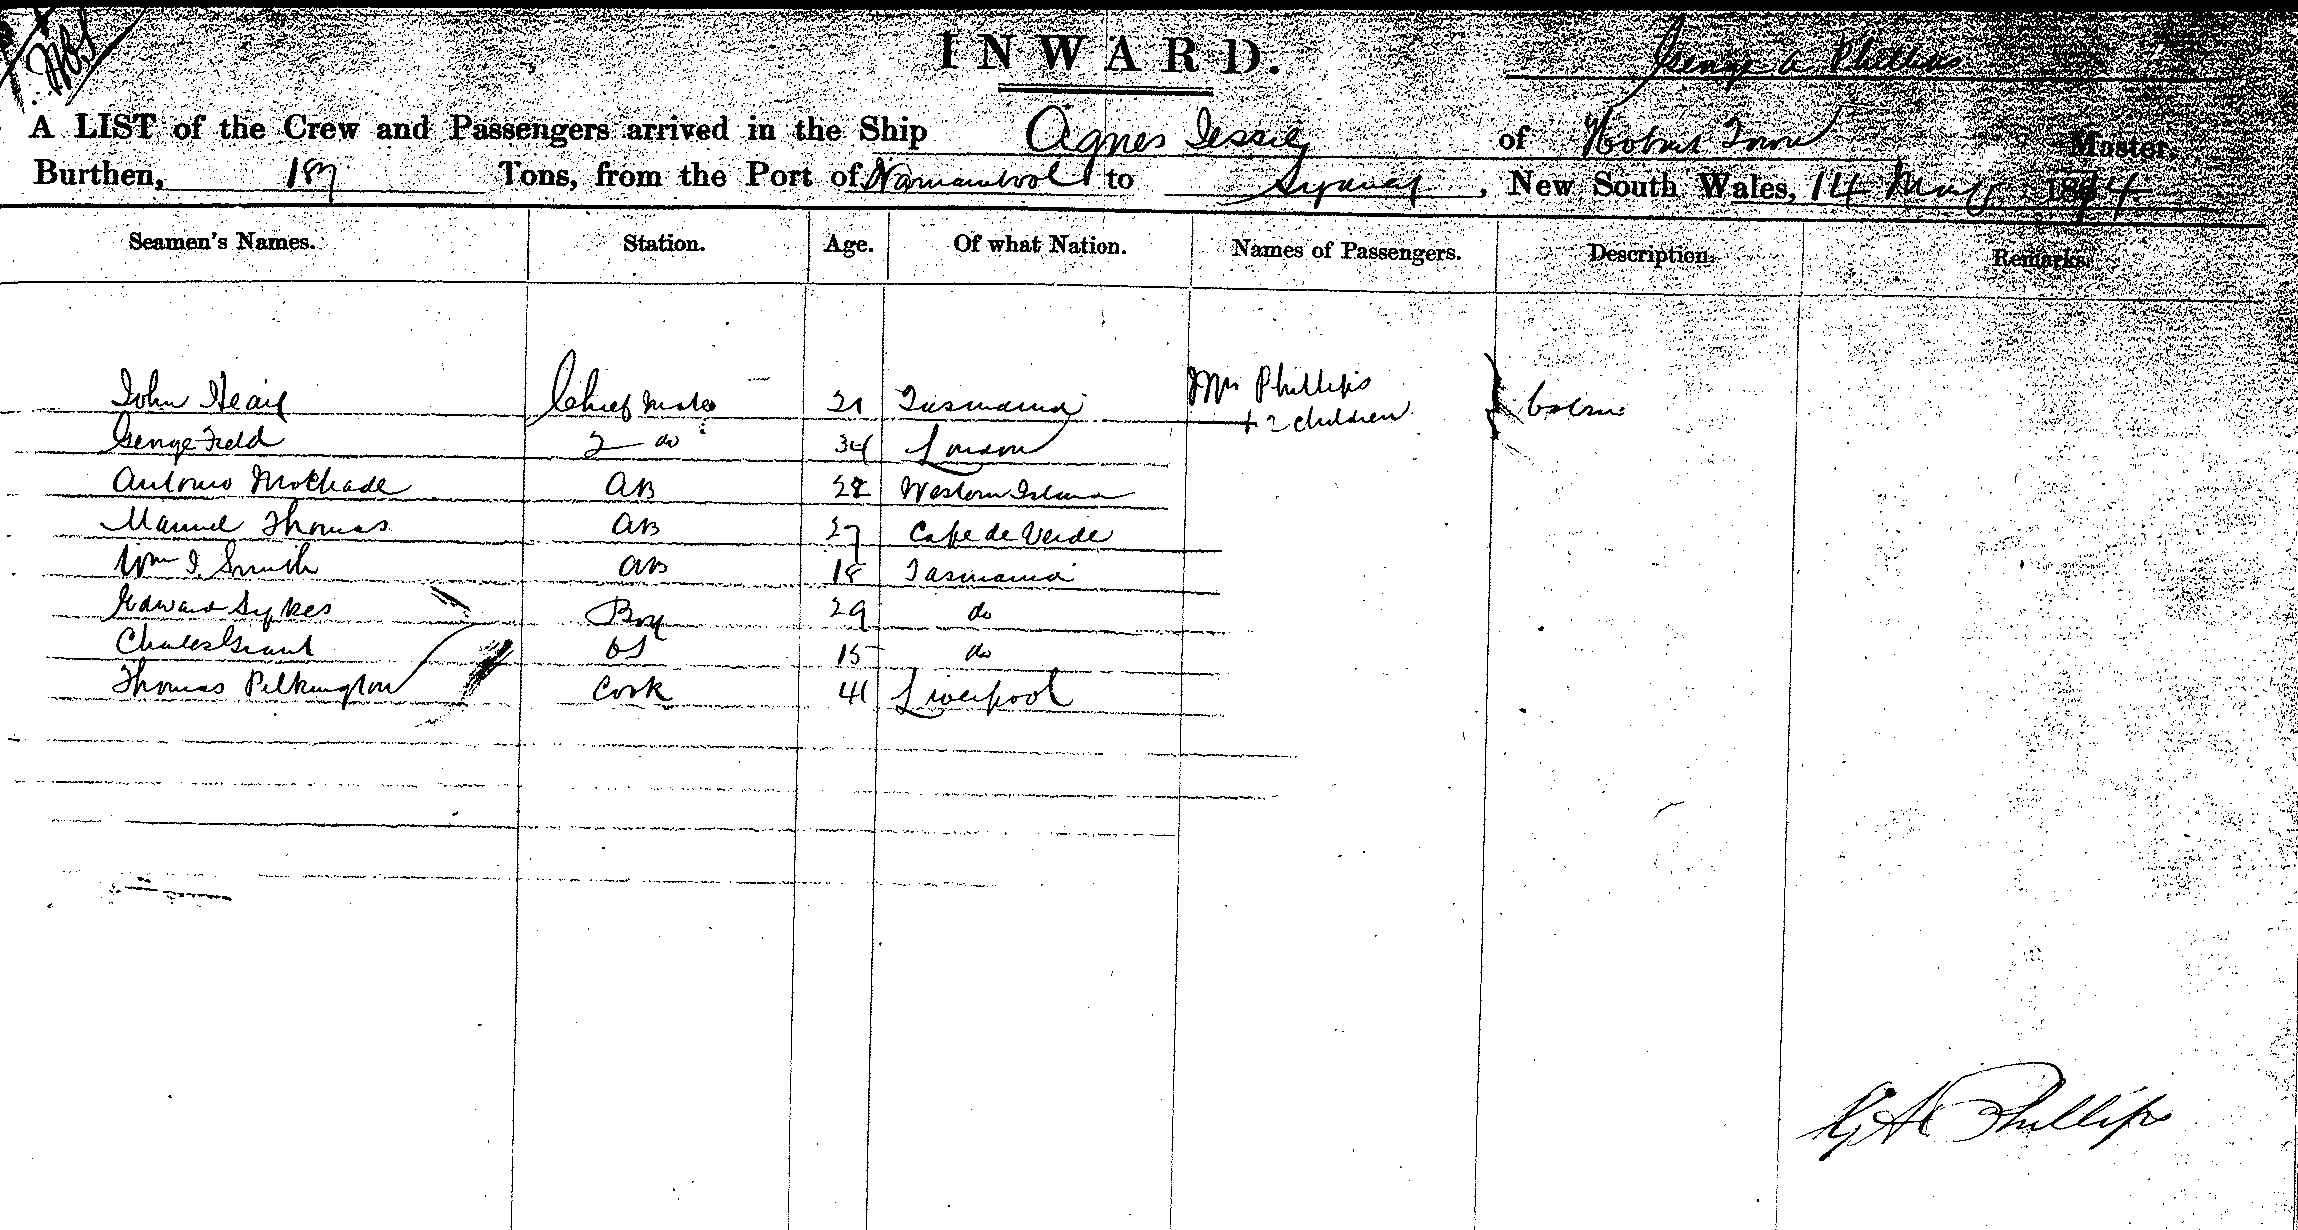 INWARD.
George A Phillips
A LIST of the Crew and Passengers arrived in the Ship Agnes Jessie of Hobart Town Master,
Burthen, 187 Tons, from the Port of Warnambool to Sydney, New South Wales, 14 May 1874
Seamen's Names. Station. Age. Of what Nation. Names of Passengers. Description. Remarks.
John Chief Mate 21 Tasmania Mrs Phillips
+ 2 children Cabin
George Field 2 do 34 London
Antonio AB 28 Western Island
Manuel Thomas AB 27 Cape de Verde
Wm J Smith AB 18 Tasmania
Edward Sykes Boy 29 do
Charles Grant OS 15 do
Thomas Pilkington Cook 41 Liverpool
G A Phillips